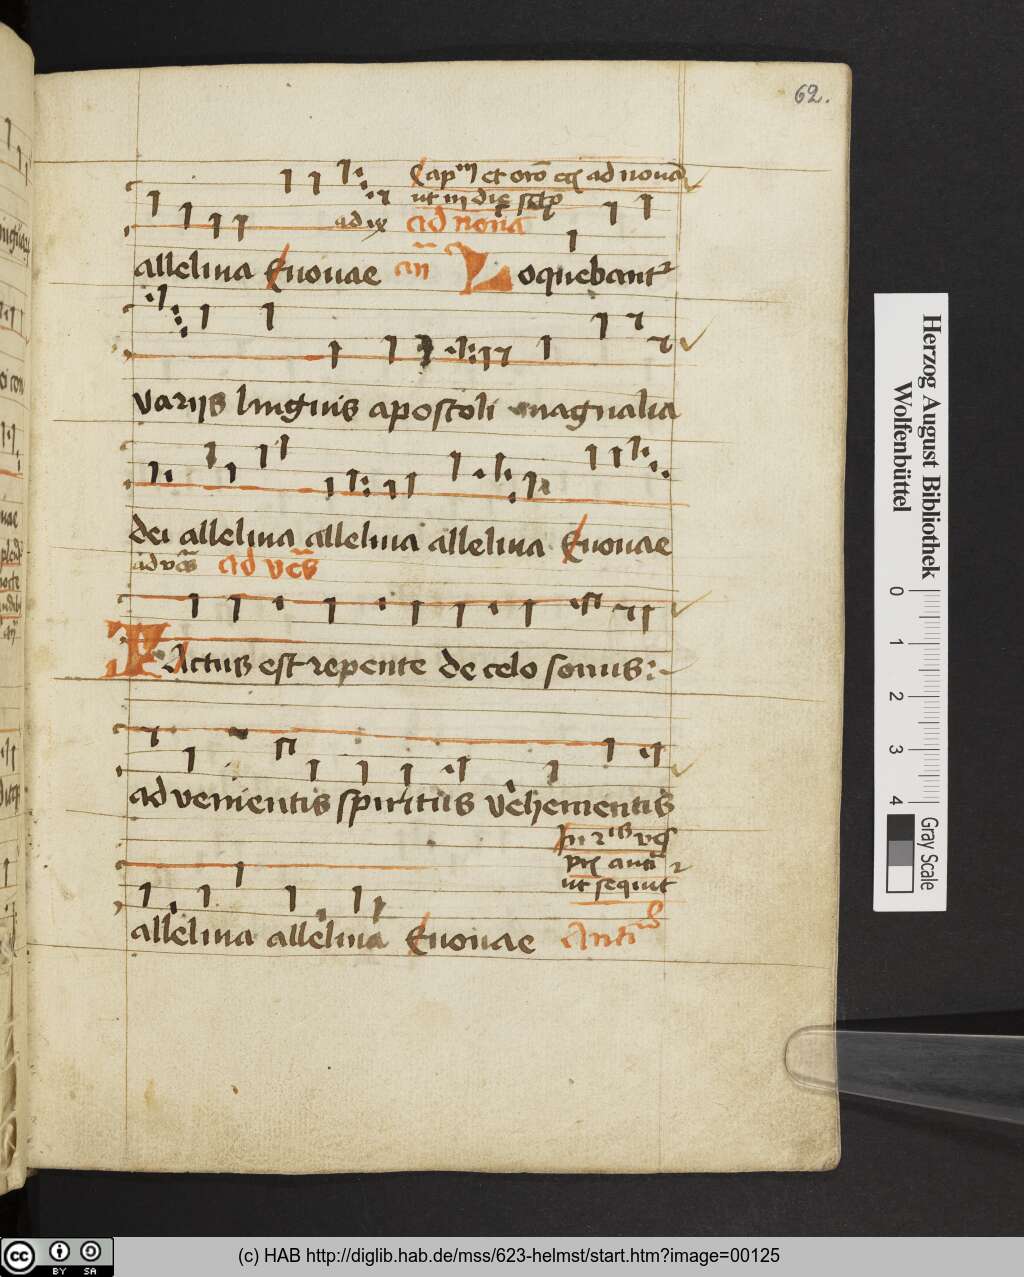 62.
Cap^m et oro~ ad nona~
ut in die
ad ix ad nona
alleliua Euouae an Loquebant^r
varijs linguis apostoli magnalia
dei alleluia alleluia alleluia Euouae
ad vēs ad vēs
FActus est repente de celo sonus:
advenientis spiritus vehementis
In 2^is
anti
ut sequit^r
alleluia alleluia Euouae Anti
Herzog August Bibliothek
Wolfenbüttel
0 1 2 3 4
Gray Scale
cc BY SA
(c) HAB http://diglib.hab.de/mss/623-helmst/start.htm?image=00125